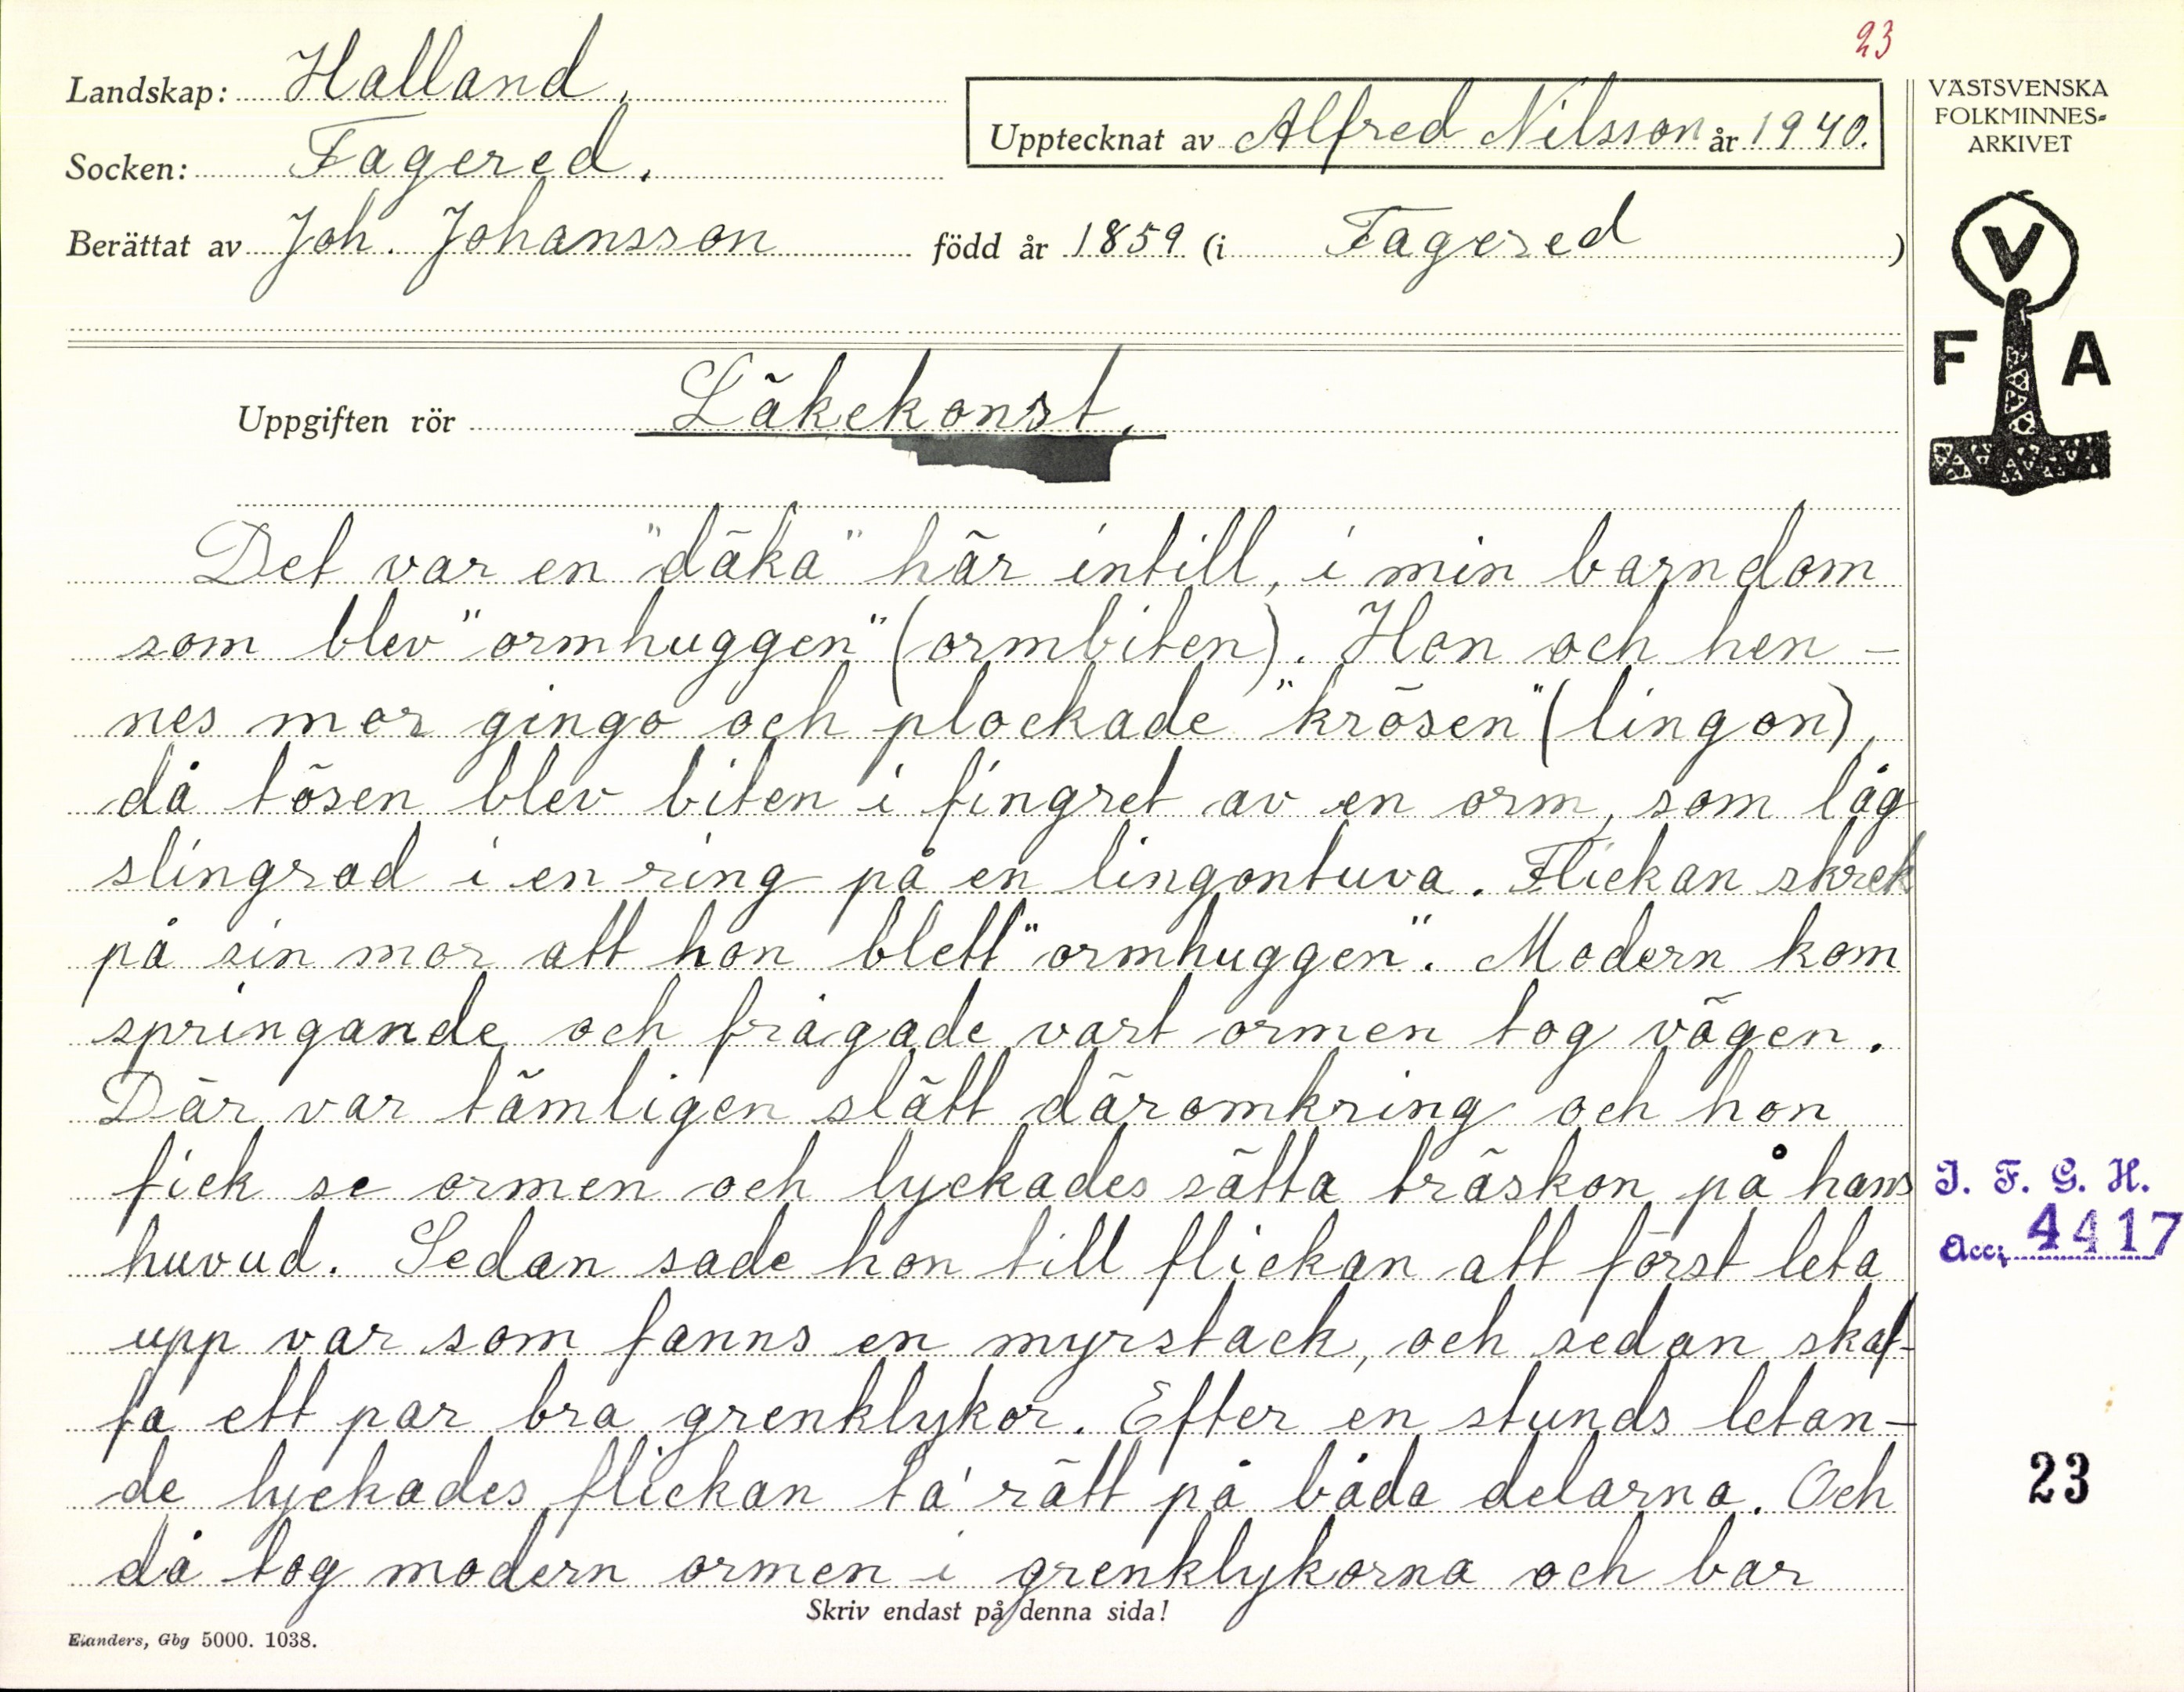 23
Landskap: Halland.
Upptecknat av Alfred Nilsson år 1940.
Socken: Fagered.
Berättat av Joh. Johansson född år 1859 (i Fagered)
VÄSTSVENSKA
FOLKMINNES-
ARKIVET
V
F A
Uppgiften rör Läkekonst.
Det var en "däka" här intill, i min barndom
som blev "ormhuggen" (ormbiten). Hon och hen-
nes mor gingo och plockade "krösen" (lingon),
då tösen blev biten i fingret av en orm, som låg
slingrad i en ring på en lingontuva. Flickan skrek
på sin mor att hon blett "ormhuggen". Modern kom
springande och frågade vart ormen tog vägen.
Där var tämligen slätt däromkring och hon
fick se ormen och lyckades sätta träskon på hans
huvud. Sedan sade hon till flickan att först leta
upp var som fanns en myrstack, och sedan skaf-
fa ett par bra grenklykor. Efter en stunds letan-
de lyckades flickan ta' rätt på båda delarna. Och
då tog modern ormen i grenklykorna och bar
I. F. G. H.
Acc: 4417
23
Skriv endast på denna sida!
Elanders, Gbg 5000. 1038.